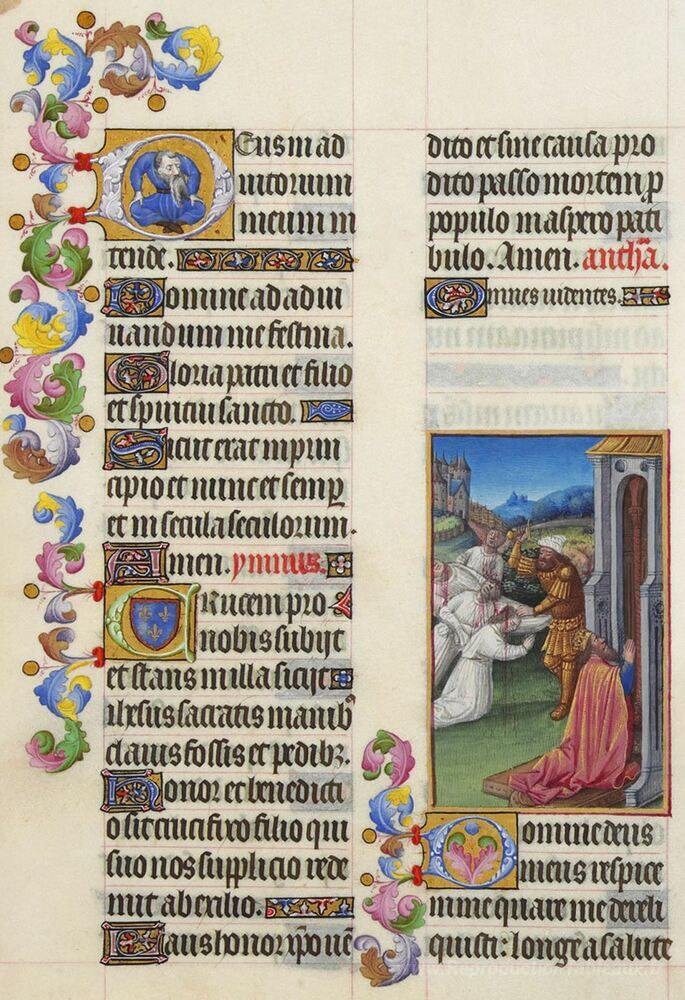 Deus in ad
iutorium
meum in
tende.
Domine ad adiu
uandum me festina.
Gloria patri et filio
et spiritui sancto.
Sicut erat in prin
cipio et nunc et semp
et in secula seculorum.
Amen. ymnus.
Crucem pro
nobis subijt
et stans in illa sicijt
ihesus sacratis manib
clauis fossis et pedibz.
Honor et benedicti
o sit crucifixo filio qui
suo nos supplicio rede
mit ab exilio.
Laus honor xpo uen
dito et sine causa pro
dito passo mortem p
populo in aspero pati
bulo. Amen. antha.
Omnes uidentes.
Domine deus
meus respice
in me quare me dereli
quisti: longe a salute